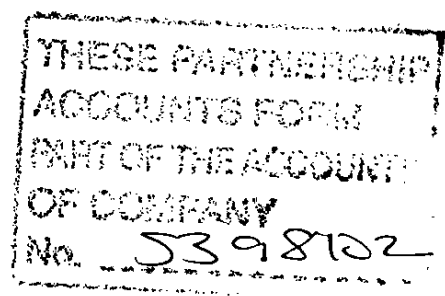 THESE PARTNERSHIP
ACCOUNTS FORM
PART OF THE ACCOUNTS
OF COMPANY
No. 5398702